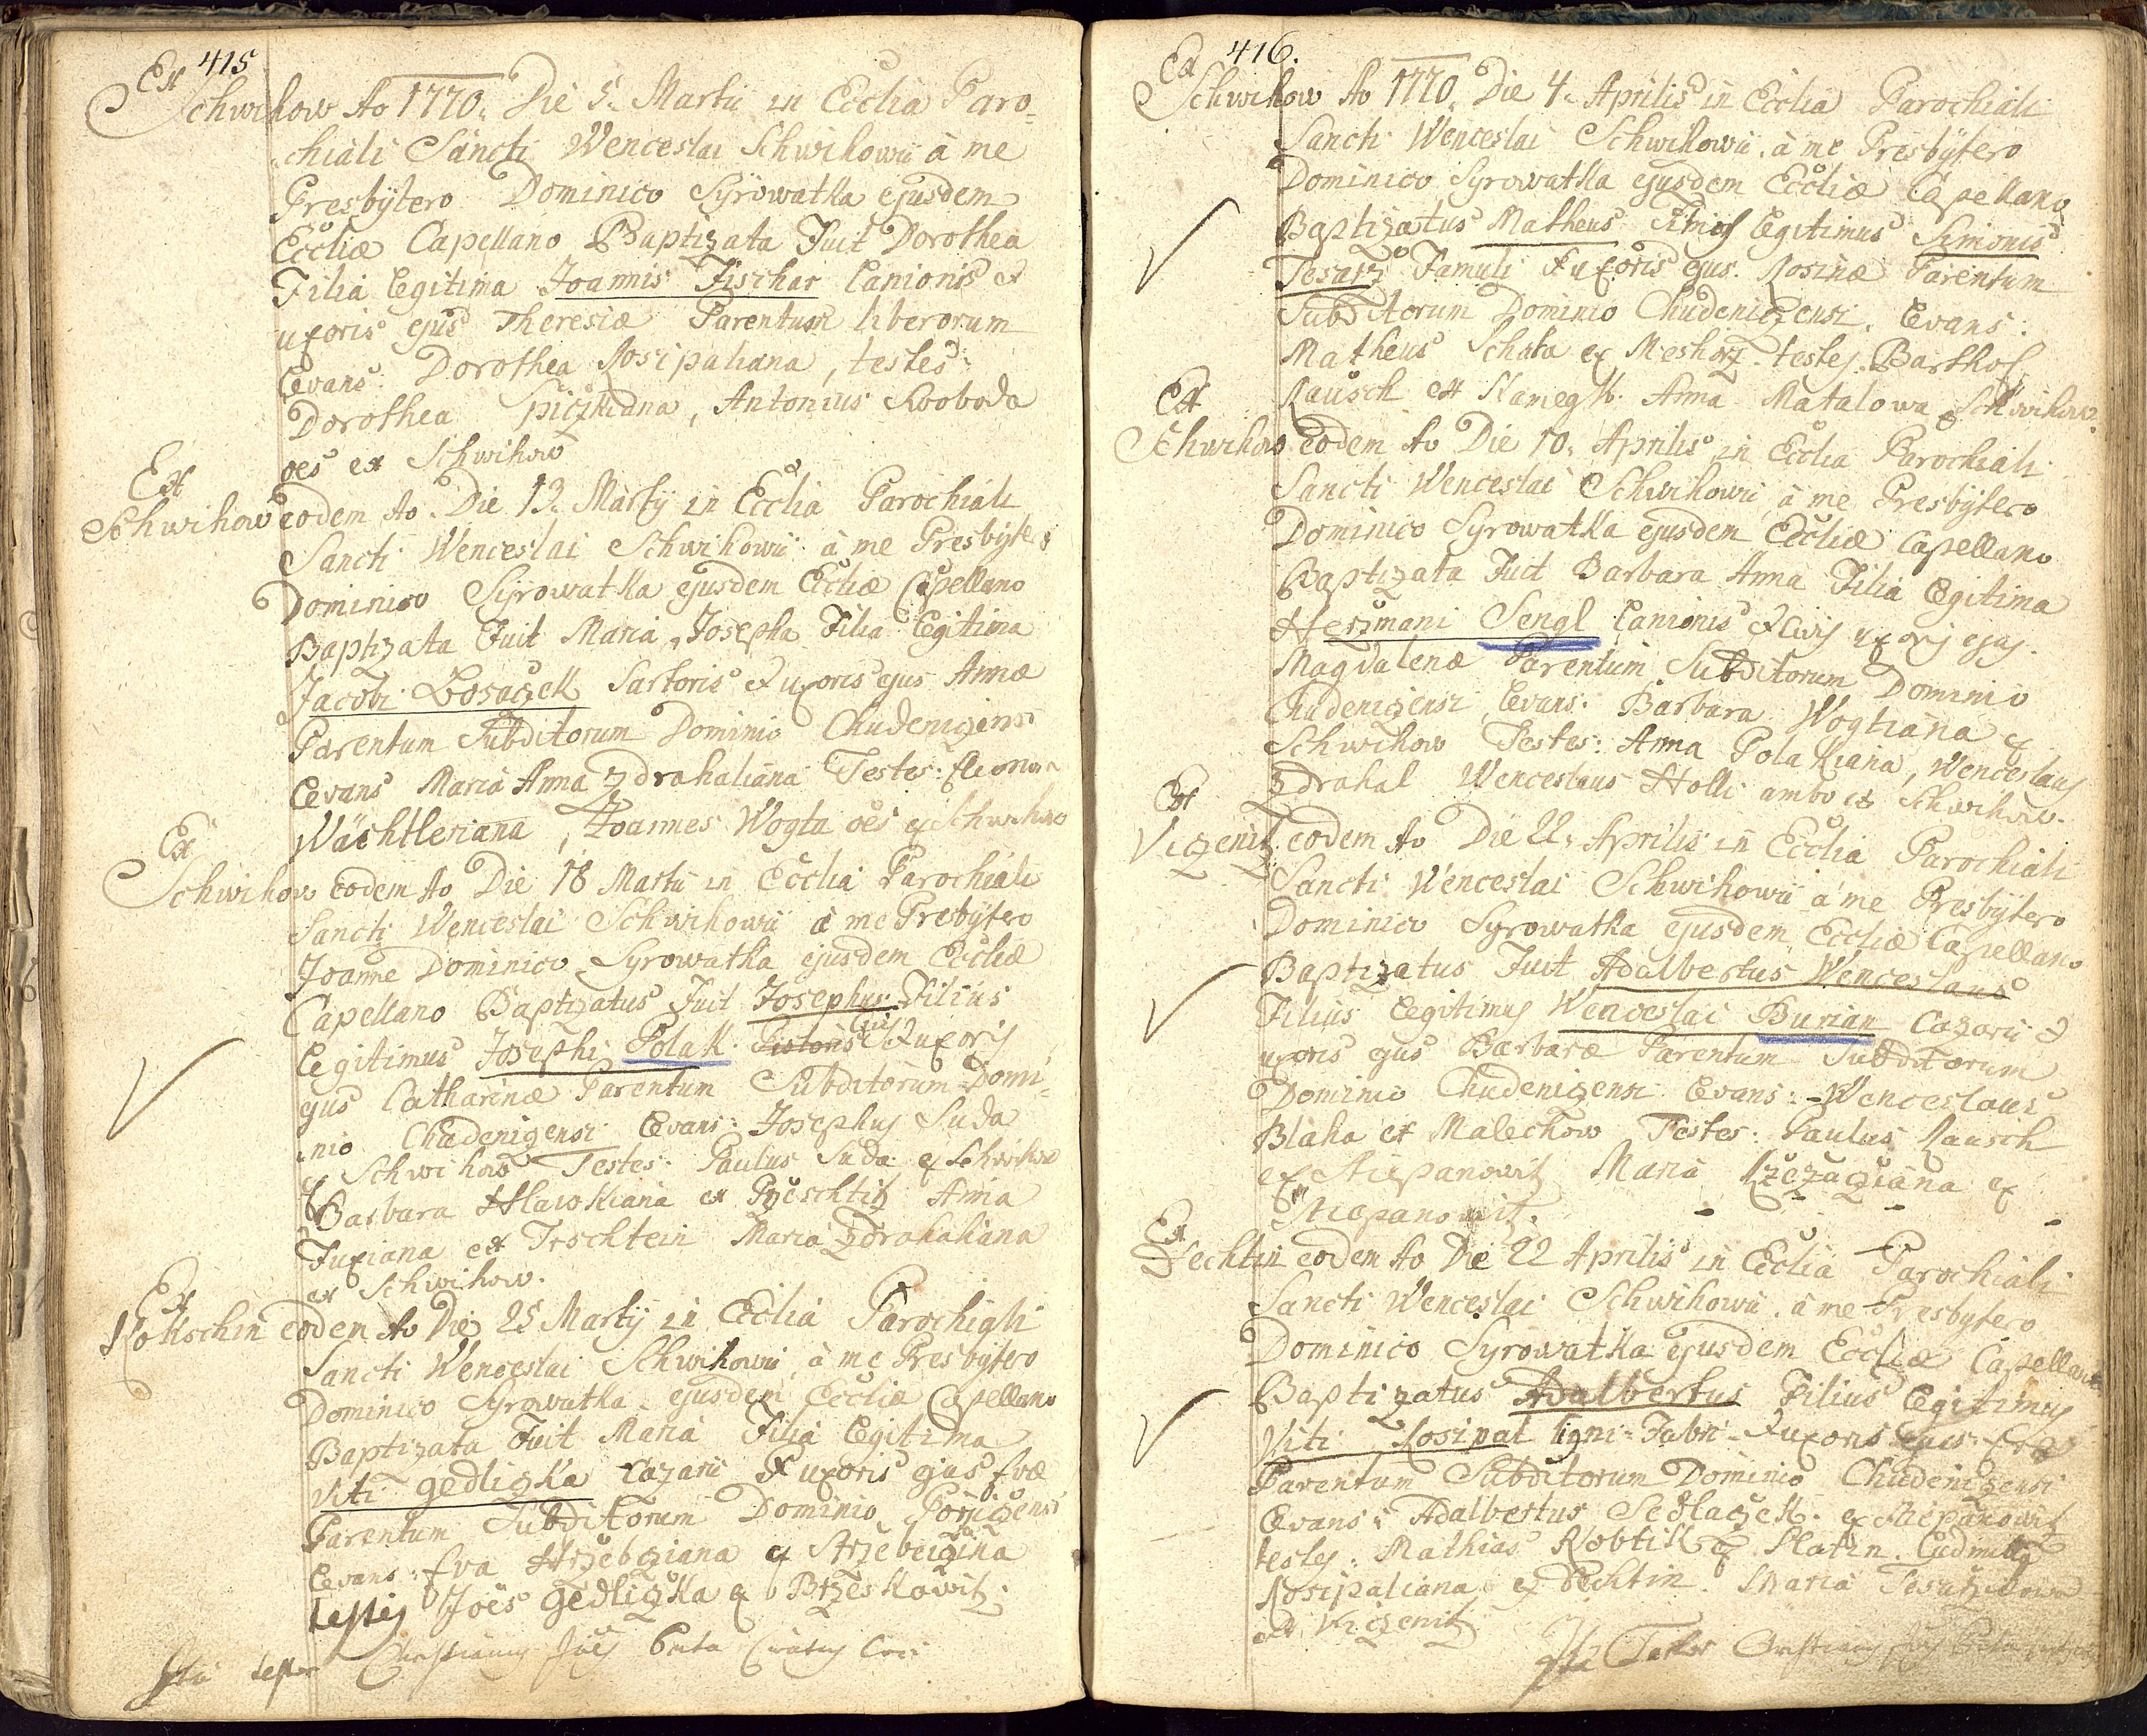 415
Ex
Schwihow Ao 1770. Die 5. Martii in Ecclia Paro-
chiali Sancti Wenceslai Schwihowii à me
Presbytero Dominico Syrowatka ejusdem
Eccliæ Capellano Baptizata Fuit Dorothea
Filia Legitima Joannis Fischer Lanionis &
uxoris ejus Theresiæ Parentum liberorum
Levans: Dorothea Kosipaliana, testes:
Dorothea Spiczkiana, Antonius Swoboda
oes ex Schwihow
Ex
Schwihow eodem Ao. Die 13. Martÿ in Ecclia Parochiali
Sancti Wenceslai Schwihowii à me Presbytero
Dominico Syrowatka ejusdem Eccliæ Capellano
Baptizata Fuit Maria Josepha Filia Legitima
Jacobi Sartoris & uxoris ejus Annæ
Parentum Subditorum Dominio Chudenizensi
Levans Maria Anna Zdrahaliana Testes:
Wachtleriana, Joannes Wogta oes ex Schwihow
Ex
Schwihow eodem Ao Die 18 Martii in Ecclia Parochiali
Sancti Wenceslai Schwihowii à me Presbytero
Joanne Dominico Syrowatka ejusdem Eccliæ
Capellano Baptizatus Fuit Josephus Filius
Legitimus Josephi Polak Pistoris Civis & uxoris
ejus Catharinæ Parentum Subditorum Domi-
nio Chudenizensi Levans: Josephus Suda
ex Schwihow Testes: Paulus Suda ex Schwihow
Barbara Hlawkiana ex Przeschtitz Anna
Fuxiana ex Teschtein Maria Zdrahaliana
ex Schwihow.
Ex
Kokschin eodem Ao Die 25 Martÿ in Ecclia Parochiali
Sancti Wenceslai Schwihowii à me Presbytero
Dominico Syrowatka ejusdem Eccliæ Capellano
Baptizata Fuit Maria Filia Legitima
Viti Gedlizka Cazarii & uxoris ejus Evæ
Parentum Subditorum Dominio
Levans: Eva ex
testes Joës Gedlizka ex Brzeskowitz.
Ita testor Christianus
416.
Ex
Schwihow Ao 1770. Die 4. Aprilis in Ecclia Parochiali
Sancti Wenceslai Schwihowii à me Presbytero
Dominico Syrowatka ejusdem Eccliæ Capellano
Baptizatus Matheus Filius Legitimus Simonis
Tesarz Famuli & uxoris ejus Rosinæ Parentum
Subditorum Dominio Chudenizensi. Levans:
Matheus Schata ex Meshorz testes Barthol.
Rausch ex Kamegk. Anna Matalowa ex Schwihow.
Ex
Schwihow eodem Ao Die 10. Aprilis in Ecclia Parochiali
Sancti Wenceslai Schwihowii à me Presbytero
Dominico Syrowatka ejusdem Eccliæ Capellano
Baptizata Fuit Barbara Anna Filia Legitima
Herzmani Sengl Lanionis & Civis uxoris ejus
Magdalenæ Parentum Subditorum Dominio
Chudenizensi Levans: Barbara Wogtiana ex
Schwihow Testes: Anna Polakiana, Wenceslaus
Zdrahal Wenceslaus Holli ambo ex Schwihow.
Ex
Vizenitz eodem Ao Die 22. Aprilis in Ecclia Parochiali
Sancti Wenceslai Schwihowii à me Presbytero
Dominico Syrowatka ejusdem Eccliæ Capellano
Baptizatus Fuit Adalbertus Wenceslaus
Filius Legitimus Wenceslai Burian Cazarii &
uxoris ejus Barbaræ Parentum Subditorum
Dominio Chudenizensi Levans: Wenceslaus
Blaha ex Malechow Testes: Paulus Rausch
ex Stiepanowitz Maria ex
Stiepanowitz.
Ex
Dechtin eodem Ao Die 22 Aprilis in Ecclia Parochiali
Sancti Wenceslai Schwihowii à me Presbytero
Dominico Syrowatka ejusdem Eccliæ Capellano
Baptizatus Adalbertus Filius Legitimus
Viti Kosipal ligni-Fabri & uxoris ejus Evæ
Parentum Subditorum Dominio Chudenizensi
Levans: Adalbertus Sedlaczek ex Stiepanowitz
testes: Mathias Kobtik ex Slatin. Ludmilla
Kosipaliana ex Dechtin. Maria
ex Vizenitz.
Ita Testor Christianus